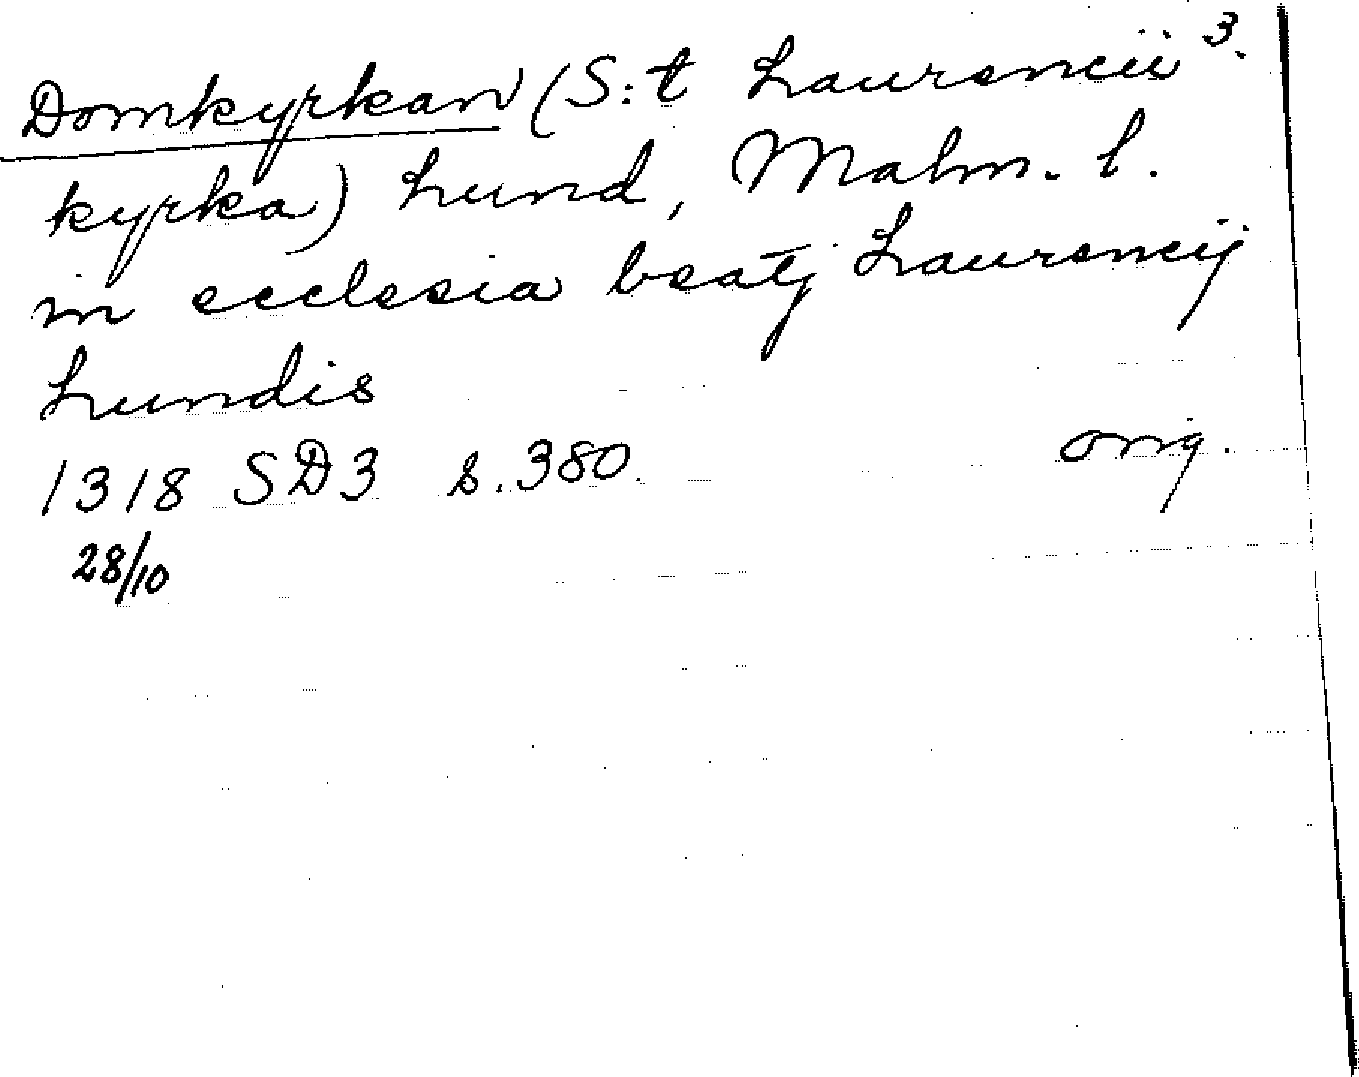 3.
Domkyrkan (S:t Laurencii
kyrka) Lund, Malm. l.
in ecclesia beatj Laurencij
Lundis
1318 SD3 s. 380. orig.
28/10